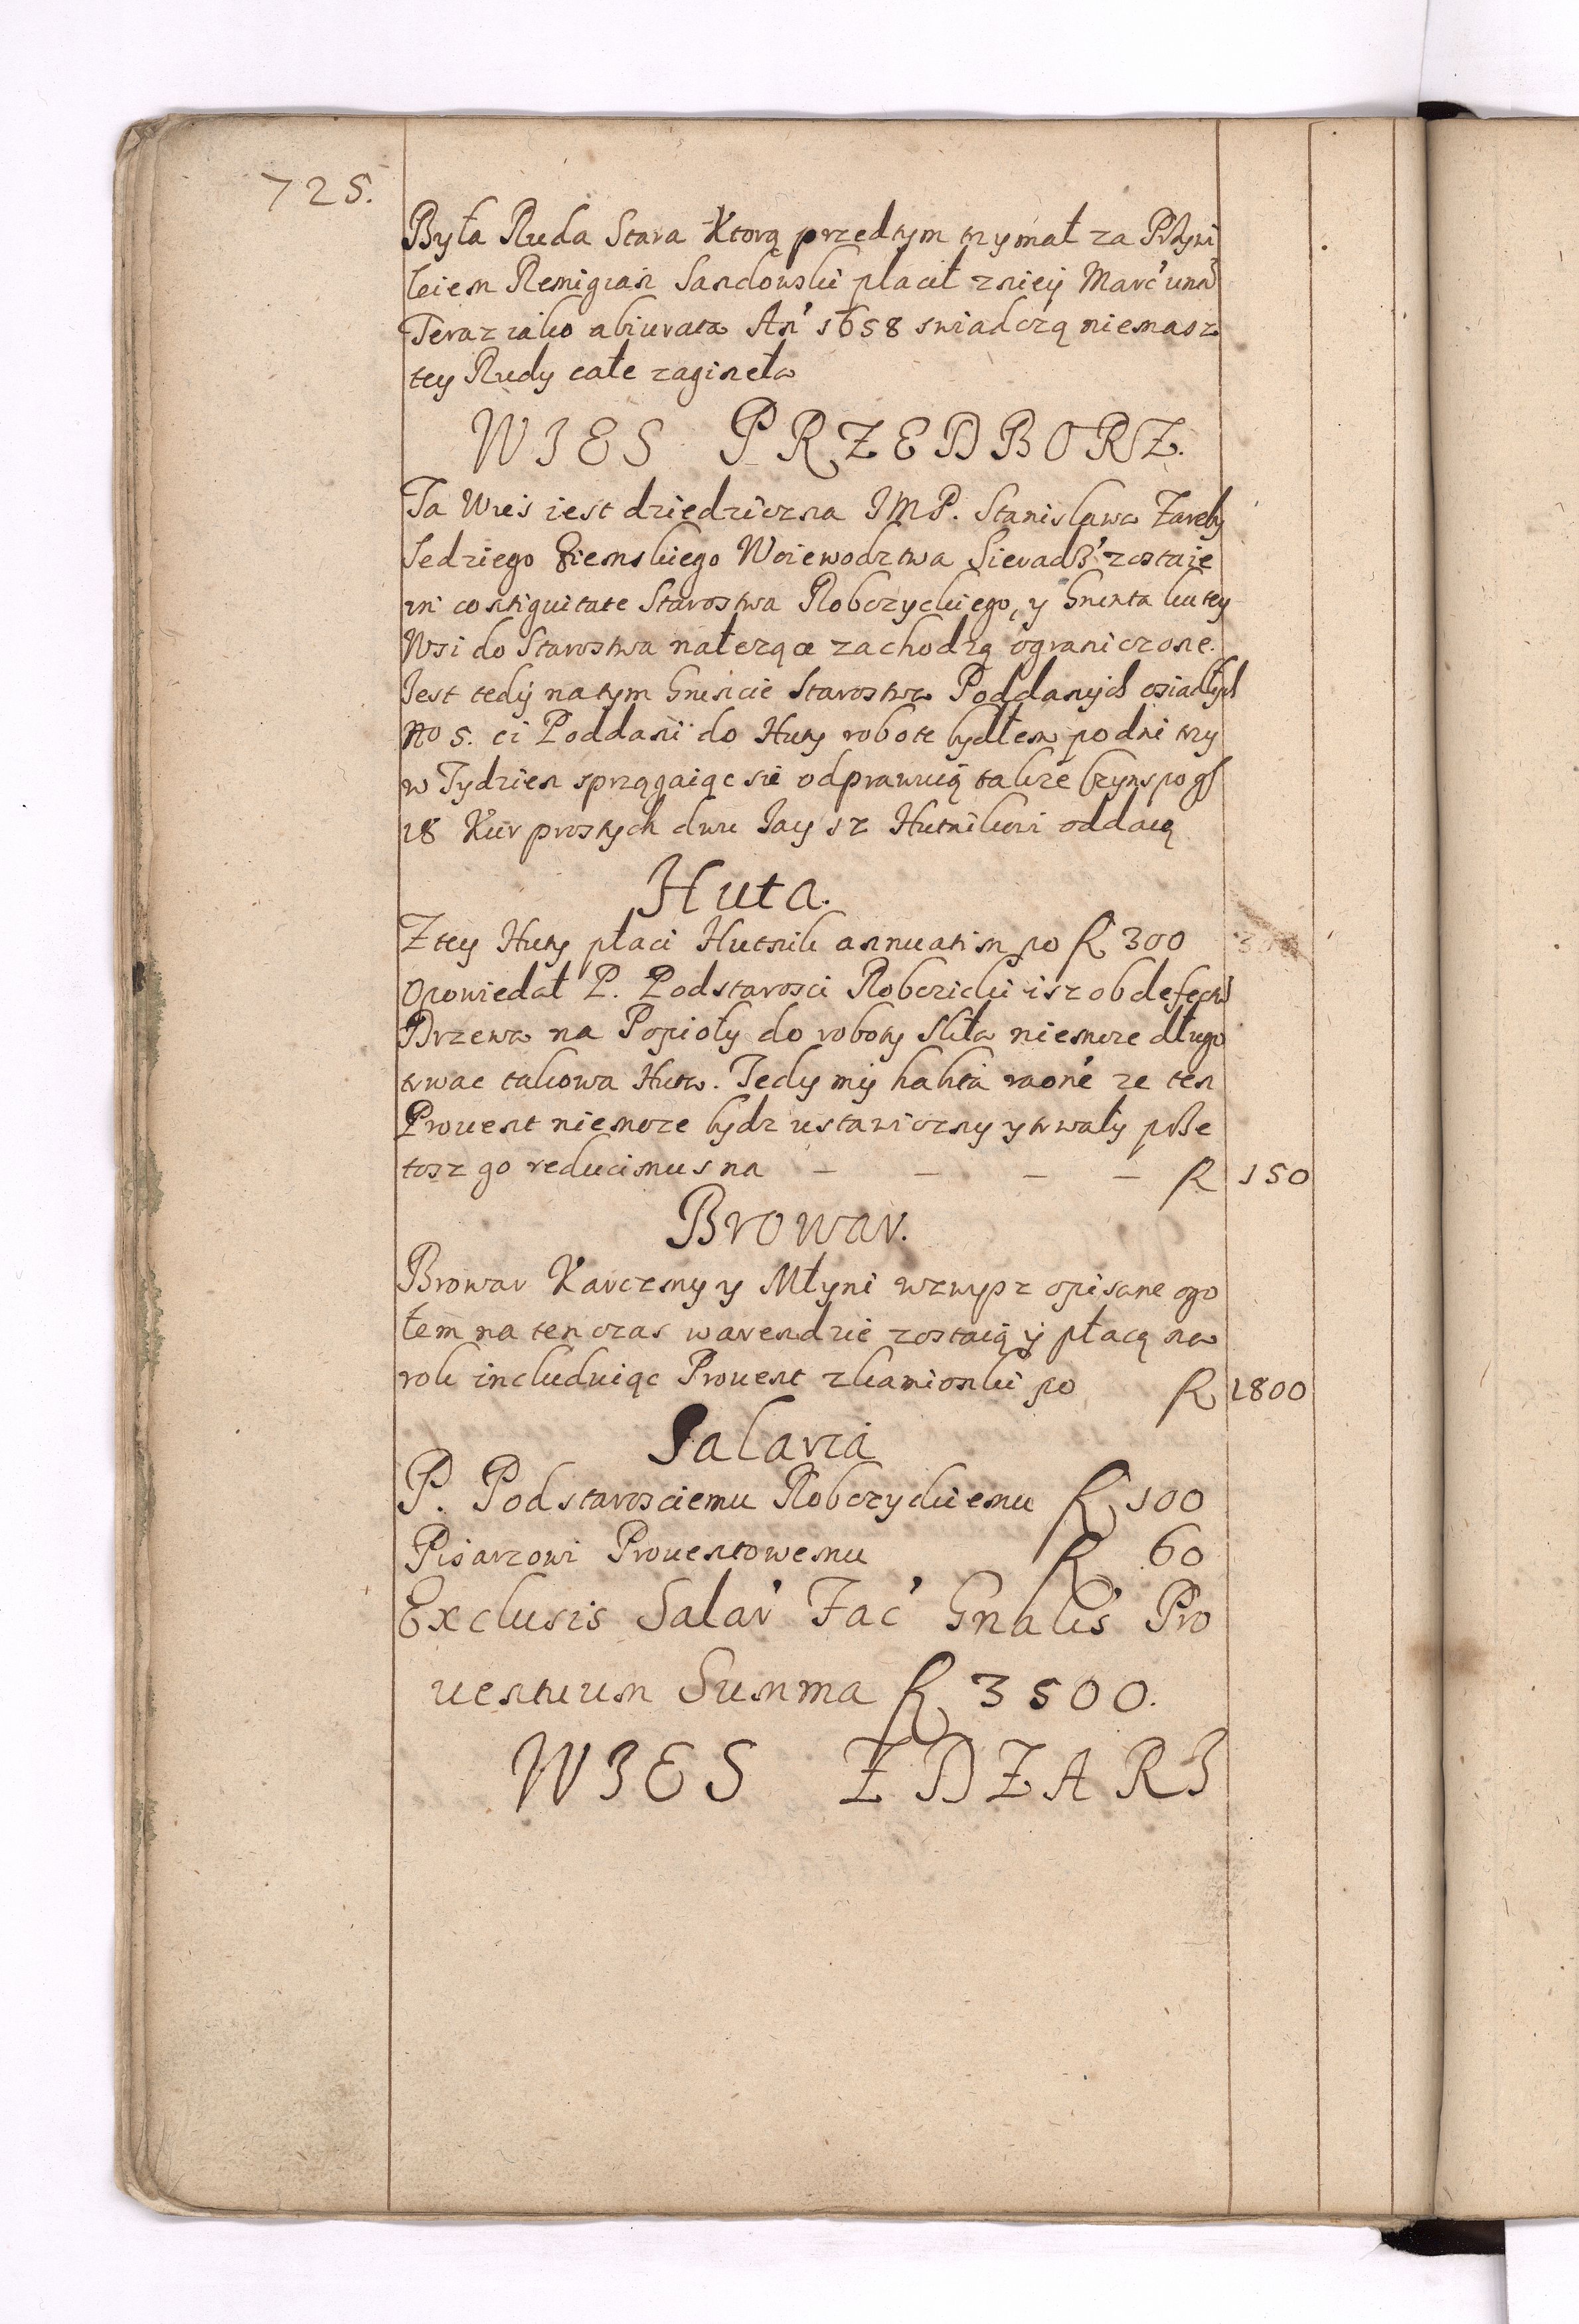 725.
Była Ruda Stara Ktorą przedtym trzymał za Przywi
leiem Remigian Sandowski płacił zniey Marc' una'
Teraz iako abiurata An' 1658 swiadczą niemasz
tey Rudy całe zagineła
WIES PRZEDBORZ.
Ta Wies iest dziedziczna IMP. Stanisława Zareby
Sedziego Ziemskiego Woiewodztwa Sieradz' zostaie
in contiguitate Starostwa Robczyckiego, y Grunta ku tey
Wsi do Starostwa należące zachodzą ograniczone.
Jest tedy na tym Gruncie Starostwa Poddanych osiadłych
No 5. ci Poddani do Huty robote bydłem po dni trzy
w Tydzien sprzągaiąc sie odprawuią także Czynsz po gr
18 Kur prostych dwu Jay 12 Hutnikowi oddaią
Huta.
Z tey Huty płaci Hutnik annuatim po fl 300
Opowiedał P. Podstarosci Robczicki isz ob defectu
Drzewa na Popioły do roboty Skła niemoze długo
trwac takowa Huta. Tedy my habita raone' ze ten
Prouent niemoze bydz ustawiczny y trwały prze
tosz go reducimus na — — — — fl 150
Browar.
Browar Karczmy y Młyni wzwysz opisane ogo
łem na ten czas w arendzie zostaią y płacą na
rok includuiąc Prouent z kamionki po fl 1800
Salaria
P. Podstarosciemu Robczyckiemu fl 100
Pisarzowi Prouentowemu fl 60
Exclusis Salar' Fac' Gnalis' Pro
uentuum Summa fl 3500.
WIES ZDZARI